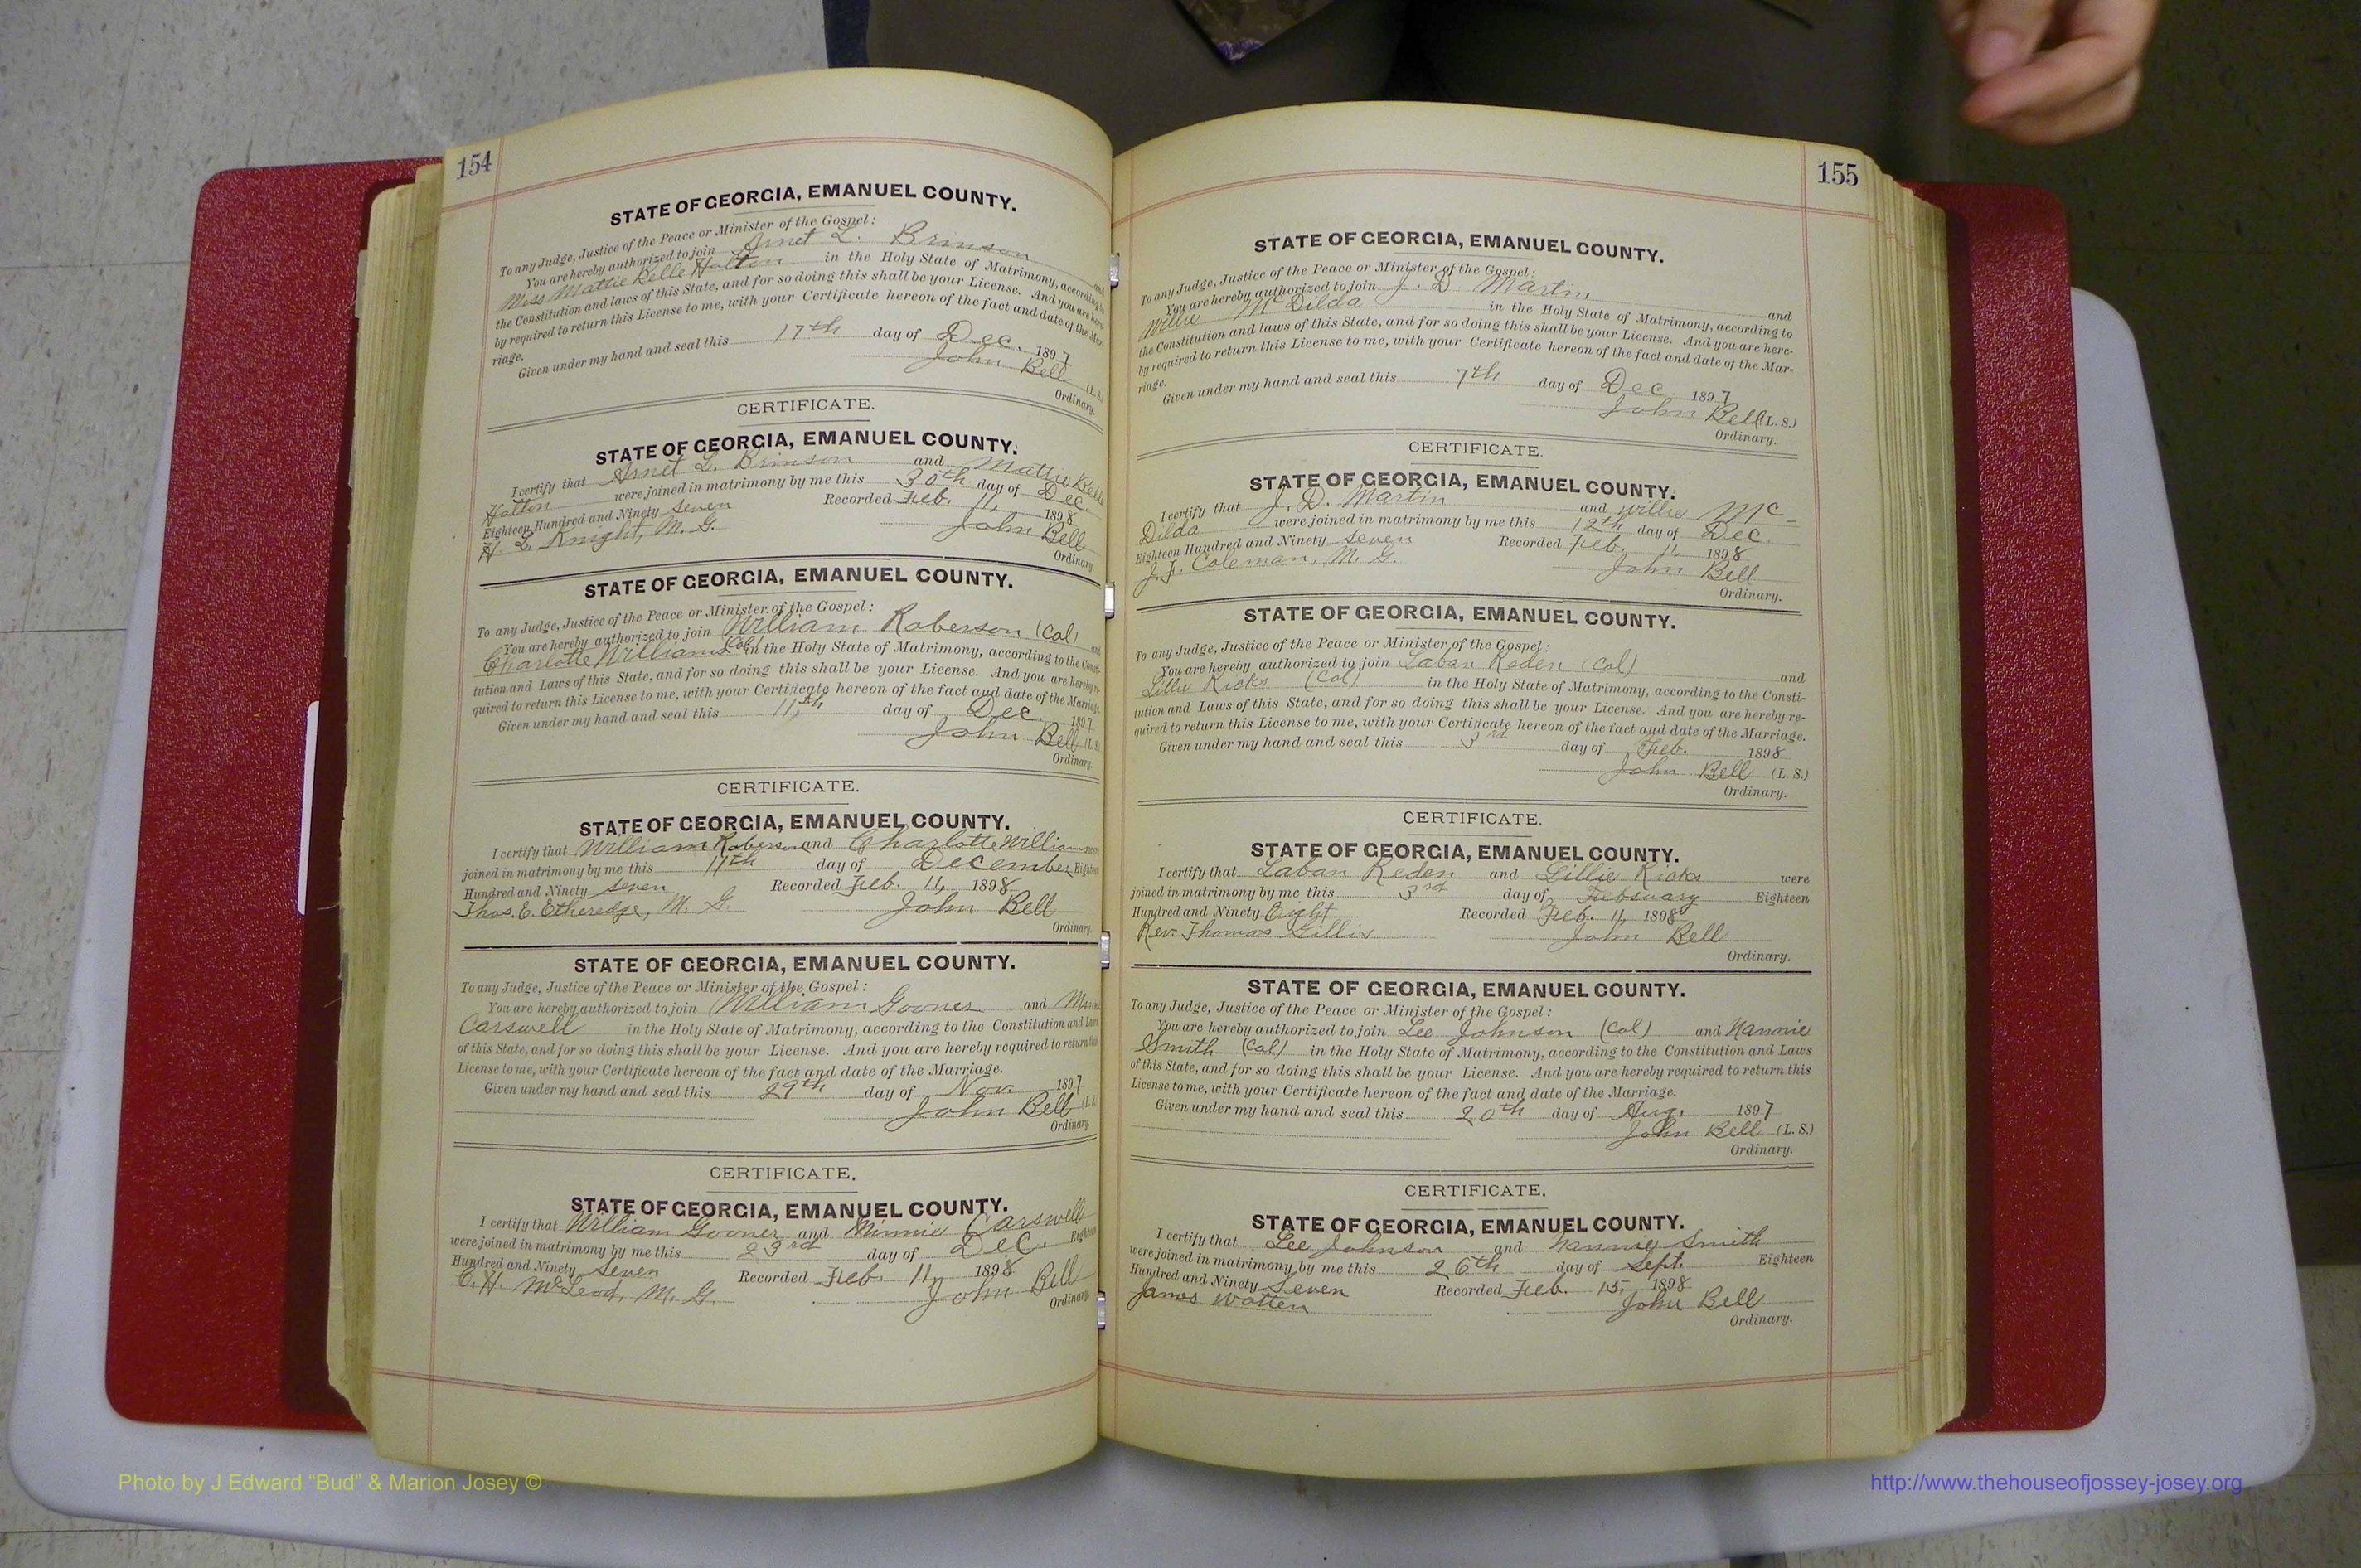 154
STATE OF GEORGIA, EMANUEL COUNTY.
To any Judge, Justice of the Peace or Minister of the Gospel:
You are hereby authorized to join Arnet L. Brinson and
Miss Mattie Belle Holton in the Holy State of Matrimony, according to
the Constitution and laws of this State, and for so doing this shall be your License. And you are here-
by required to return this License to me, with your Certificate hereon of the fact and date of the Mar-
riage.
Given under my hand and seal this 17th day of Dec. 1897
John Bell (L. S.)
Ordinary.
CERTIFICATE.
STATE OF GEORGIA, EMANUEL COUNTY.
I certify that Arnet L. Brinson and Mattie Belle
Holton were joined in matrimony by me this 30th day of Dec.
Eighteen Hundred and Ninety seven Recorded Feb. 11, 1898
H. L. Knight, M. G. John Bell
Ordinary.
STATE OF GEORGIA, EMANUEL COUNTY.
To any Judge, Justice of the Peace or Minister of the Gospel:
You are hereby authorized to join William Roberson (Col) and
Charlotte Williams (Col) in the Holy State of Matrimony, according to the Consti-
tution and Laws of this State, and for so doing this shall be your License. And you are hereby re-
quired to return this License to me, with your Certificate hereon of the fact and date of the Marriage.
Given under my hand and seal this 11th day of Dec. 1897
John Bell (L. S.
Ordinary.
CERTIFICATE.
STATE OF GEORGIA, EMANUEL COUNTY.
I certify that William Roberson and Charlotte Williams were
joined in matrimony by me this 11th day of December Eighteen
Hundred and Ninety seven Recorded Feb. 11, 1898
Thos. E. Etheredge, M. G. John Bell
Ordinary.
STATE OF GEORGIA, EMANUEL COUNTY.
To any Judge, Justice of the Peace or Minister of the Gospel:
You are hereby authorized to join William Gooner and
Carswell in the Holy State of Matrimony, according to the Constitution and Laws
of this State, and for so doing this shall be your License. And you are hereby required to return this
License to me, with your Certificate hereon of the fact and date of the Marriage.
Given under my hand and seal this 29th day of Nov. 1897
John Bell (L. S.
Ordinary.
CERTIFICATE.
STATE OF GEORGIA, EMANUEL COUNTY.
I certify that William Gooner and Minnie Carswell
were joined in matrimony by me this 23rd day of Dec. Eighteen
Hundred and Ninety seven Recorded Feb. 11, 1898
E. H. McLeod, M. G. John Bell
Ordinary.
155
STATE OF GEORGIA, EMANUEL COUNTY.
To any Judge, Justice of the Peace or Minister of the Gospel:
You are hereby authorized to join J. D. Martin and
Willie McDilda in the Holy State of Matrimony, according to
the Constitution and laws of this State, and for so doing this shall be your License. And you are here-
by required to return this License to me, with your Certificate hereon of the fact and date of the Mar-
riage.
Given under my hand and seal this 7th day of Dec 1897
John Bell (L. S.)
Ordinary.
CERTIFICATE.
STATE OF GEORGIA, EMANUEL COUNTY.
I certify that J. D. Martin and Willie Mc-
Dilda were joined in matrimony by me this 12th day of Dec.
Eighteen Hundred and Ninety seven Recorded Feb. 11, 1898
J. F. Coleman, M. G. John Bell
Ordinary.
STATE OF GEORGIA, EMANUEL COUNTY.
To any Judge, Justice of the Peace or Minister of the Gospel:
You are hereby authorized to join Laban Reden (Col) and
Lillie Ricks (Col) in the Holy State of Matrimony, according to the Consti-
tution and Laws of this State, and for so doing this shall be your License. And you are hereby re-
quired to return this License to me, with your Certificate hereon of the fact and date of the Marriage.
Given under my hand and seal this 3rd day of Feb. 1898
John Bell (L. S.)
Ordinary.
CERTIFICATE.
STATE OF GEORGIA, EMANUEL COUNTY.
I certify that Laban Reden and Lillie Ricks were
joined in matrimony by me this 3rd day of February Eighteen
Hundred and Ninety Eight Recorded Feb. 11, 1898
Rev. Thomas Gillis John Bell
Ordinary.
STATE OF GEORGIA, EMANUEL COUNTY.
To any Judge, Justice of the Peace or Minister of the Gospel:
You are hereby authorized to join Lee Johnson (Col) and Nannie
Smith (Col) in the Holy State of Matrimony, according to the Constitution and Laws
of this State, and for so doing this shall be your License. And you are hereby required to return this
License to me, with your Certificate hereon of the fact and date of the Marriage.
Given under my hand and seal this 20th day of Aug. 1897
John Bell (L. S.)
Ordinary.
CERTIFICATE.
STATE OF GEORGIA, EMANUEL COUNTY.
I certify that Lee Johnson and Nannie Smith
were joined in matrimony by me this 26th day of Sept. Eighteen
Hundred and Ninety Seven Recorded Feb. 15, 1898
James Wotten John Bell
Ordinary.
Photo by J Edward "Bud" & Marion Josey ©
http://www.thehouseofjossey-josey.org